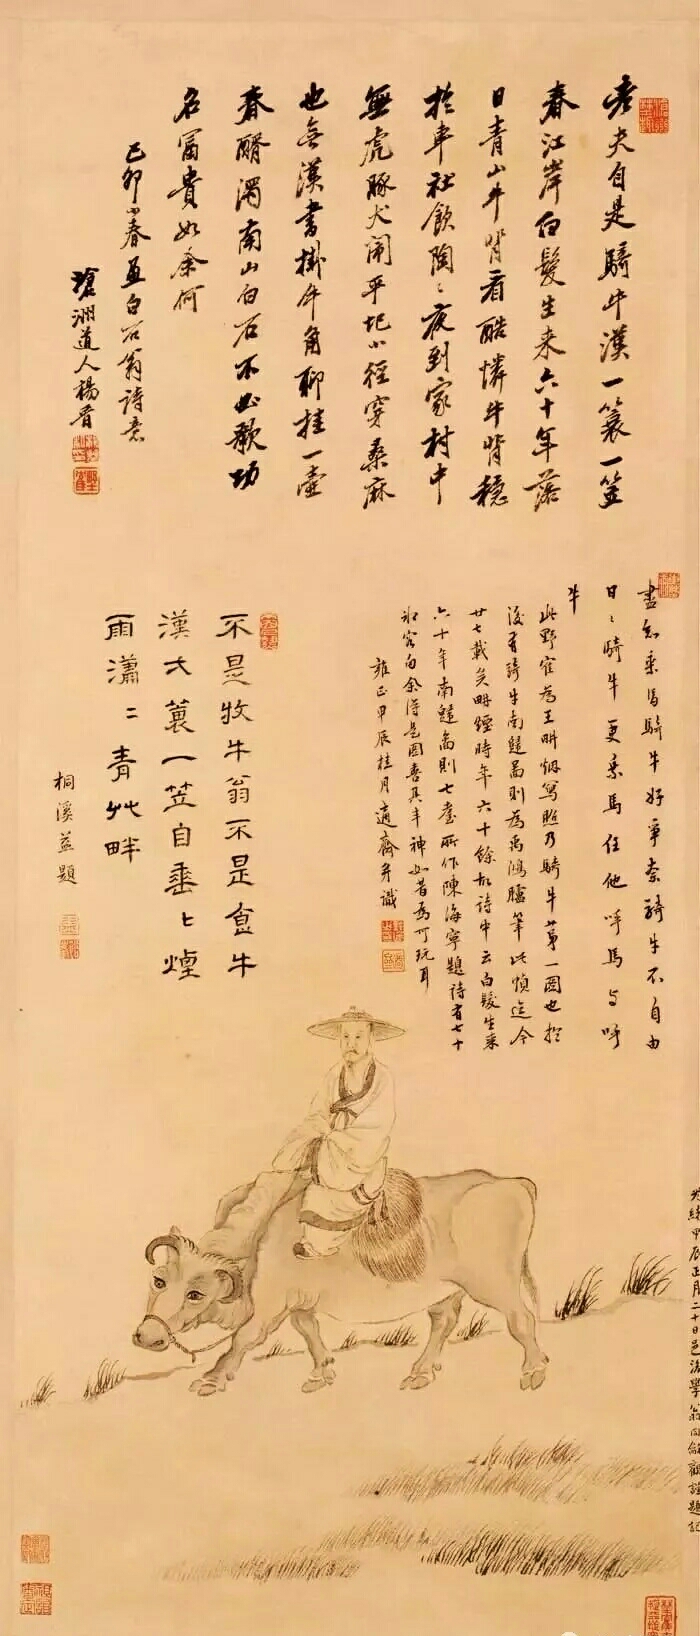 老夫自是騎牛漢一蓑一笠
春江岸白髮生来六十年落
日青山牛背看酷憐牛背穩
於車社飲陶〻夜到家村中
無虎豚犬鬧平地小徑穿桑麻
也無漢書掛牛角聊挂一壺
春醑濁南山白石不必歌功
名富貴如余何
己卯小春画白石翁詩意
滄洲道人楊晋
盡知乘馬騎牛好爭奈騎牛不自由
日〻騎牛更乘馬任他呼馬与呼
牛
此野崔為王畊烟寫照乃騎牛第一圖也於
後有騎牛南還啚則為禹鴻臚筆此幀迄今
廿七載矣畊煙時年六十餘故詩中云白髮生来
六十年南還啚則七耋所作陳海寧題詩有七十
余得是圖喜其丰神如昔為可玩耳
雍正甲辰桂月適齋并識
不是牧牛翁不是食牛
漢大蓑一笠自垂〻煙
雨瀟〻青艸畔
桐溪益題
光緒甲辰正月二十日邑後學翁同龢觀謹題記